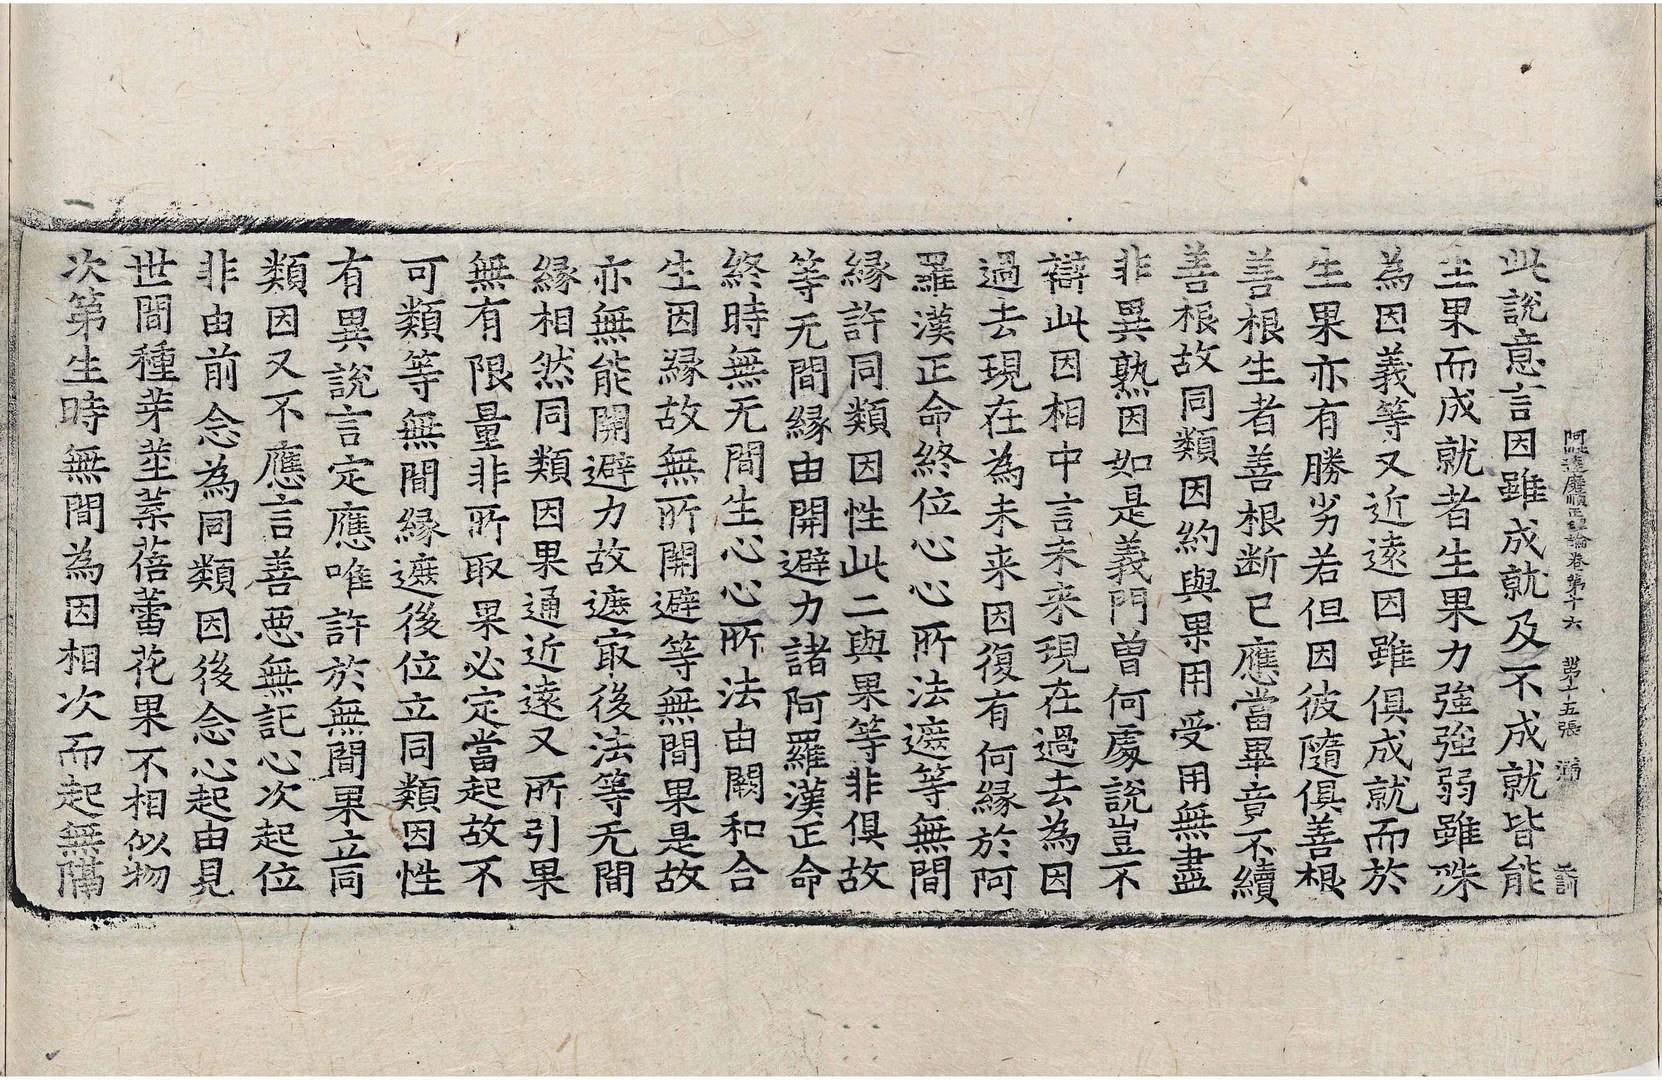 阿毗達磨順正理論卷第十六　第十五張　满　玄訓
此說意言因雖成就及不成就皆能
生果而成就者生果力強強弱雖殊
為因義等又近遠因雖俱成就而於
生果亦有勝劣若但因彼隨俱善根
善根生者善根斷已應當畢竟不續
善根故同類因約與果用受用無盡
非異熟因如是義門曾何處說豈不
辯此因相中言未來現在過去為因
過去現在為未来因復有何縁於阿
羅漢正命終位心心所法遮等無間
縁許同類因性此二與果等非俱故
等无間縁由開避力諸阿羅漢正命
終時無无間生心心所法由闕和合
生因縁故無所開避等無間果是故
亦無能開避力故遮㝡後法等无間
縁相然同類因果通近遠又所引果
無有限量非所取果必定當起故不
可類等無間縁遮後位立同類因性
有異說言定應唯許於無間果立同
類因又不應言善惡無記心次起位
非由前念為同類因後念心起由見
世間種芽莖葉蓓蕾花果不相似物
次第生時無間為因相次而起無隔